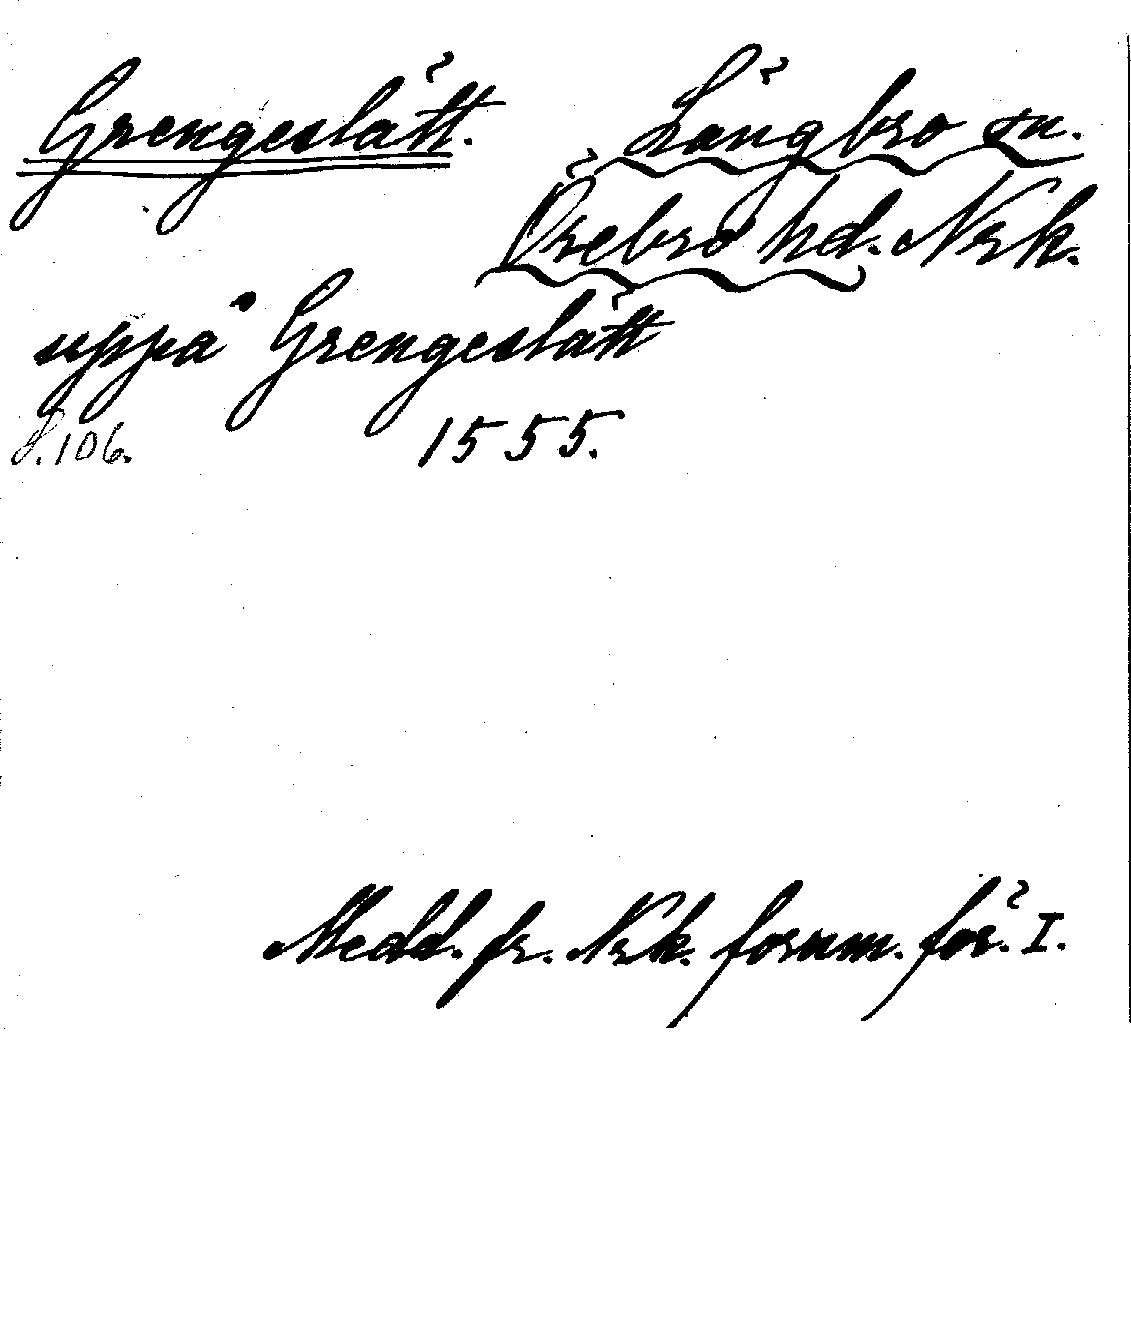 Grengeslätt. Längbro sn.
Örebro hd. Nrk.
uppå Grengeslätt
s. 106. 1555.
Medd. fr. Nrk. fornm. för. I.